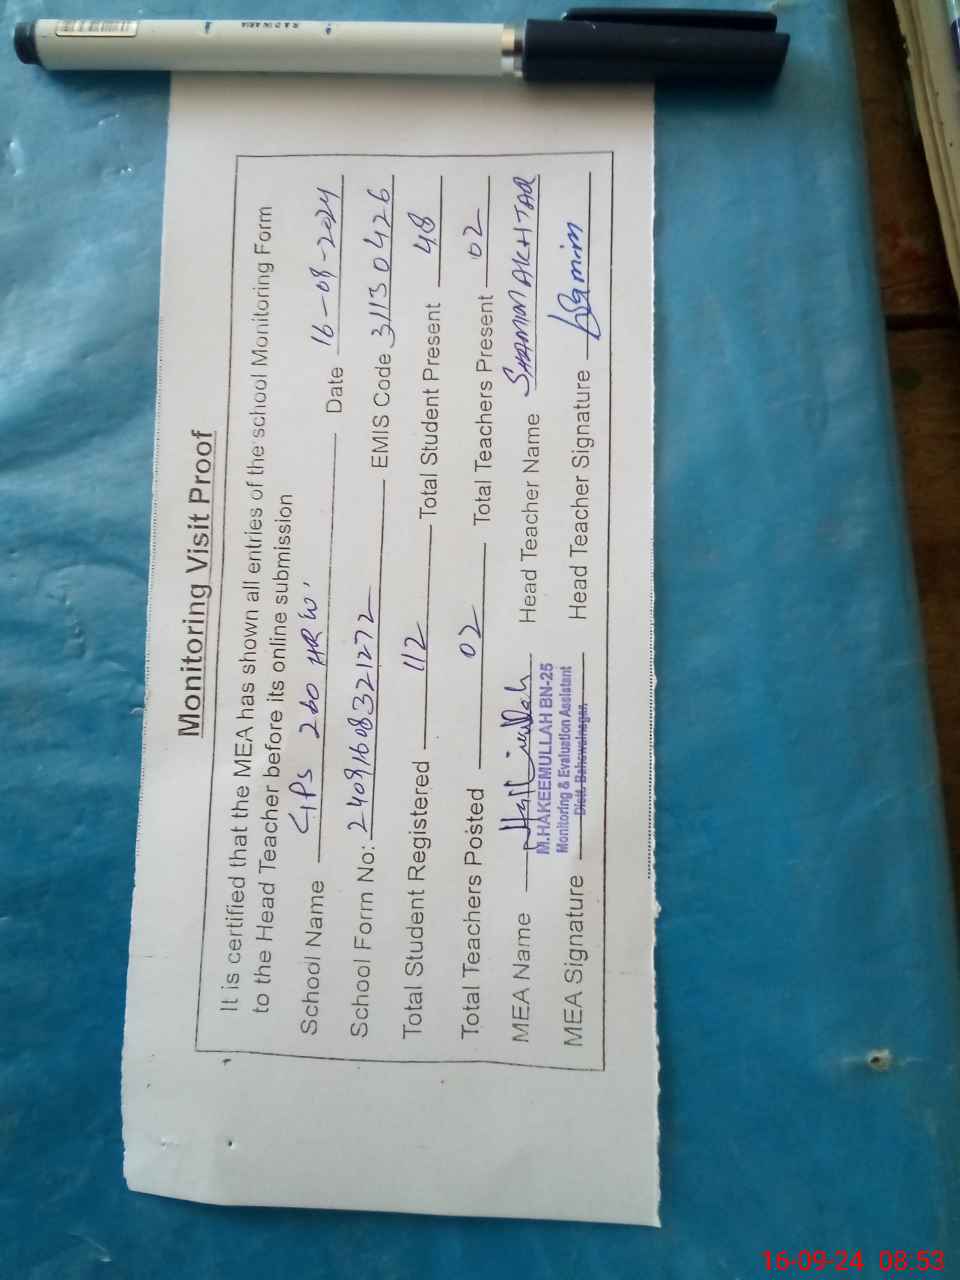 Monitoring Visit Proof
It is certified that the MEA has shown all entries of the school Monitoring Form
to the Head Teacher before its online submission
School Name GPS 260 HR W. Date 16-09-2024
School Form No: 24091608321272 EMIS Code 31130426
Total Student Registered 112 Total Student Present 48
Total Teachers Posted 02 Total Teachers Present 02
MEA Name Head Teacher Name SHAMIM AKHTAR
M.HAKEEMULLAH BN-25
Monitoring & Evaluation Assistant
Distt. Bahawalnagar.
MEA Signature Head Teacher Signature Shamim
16-09-24 08:53